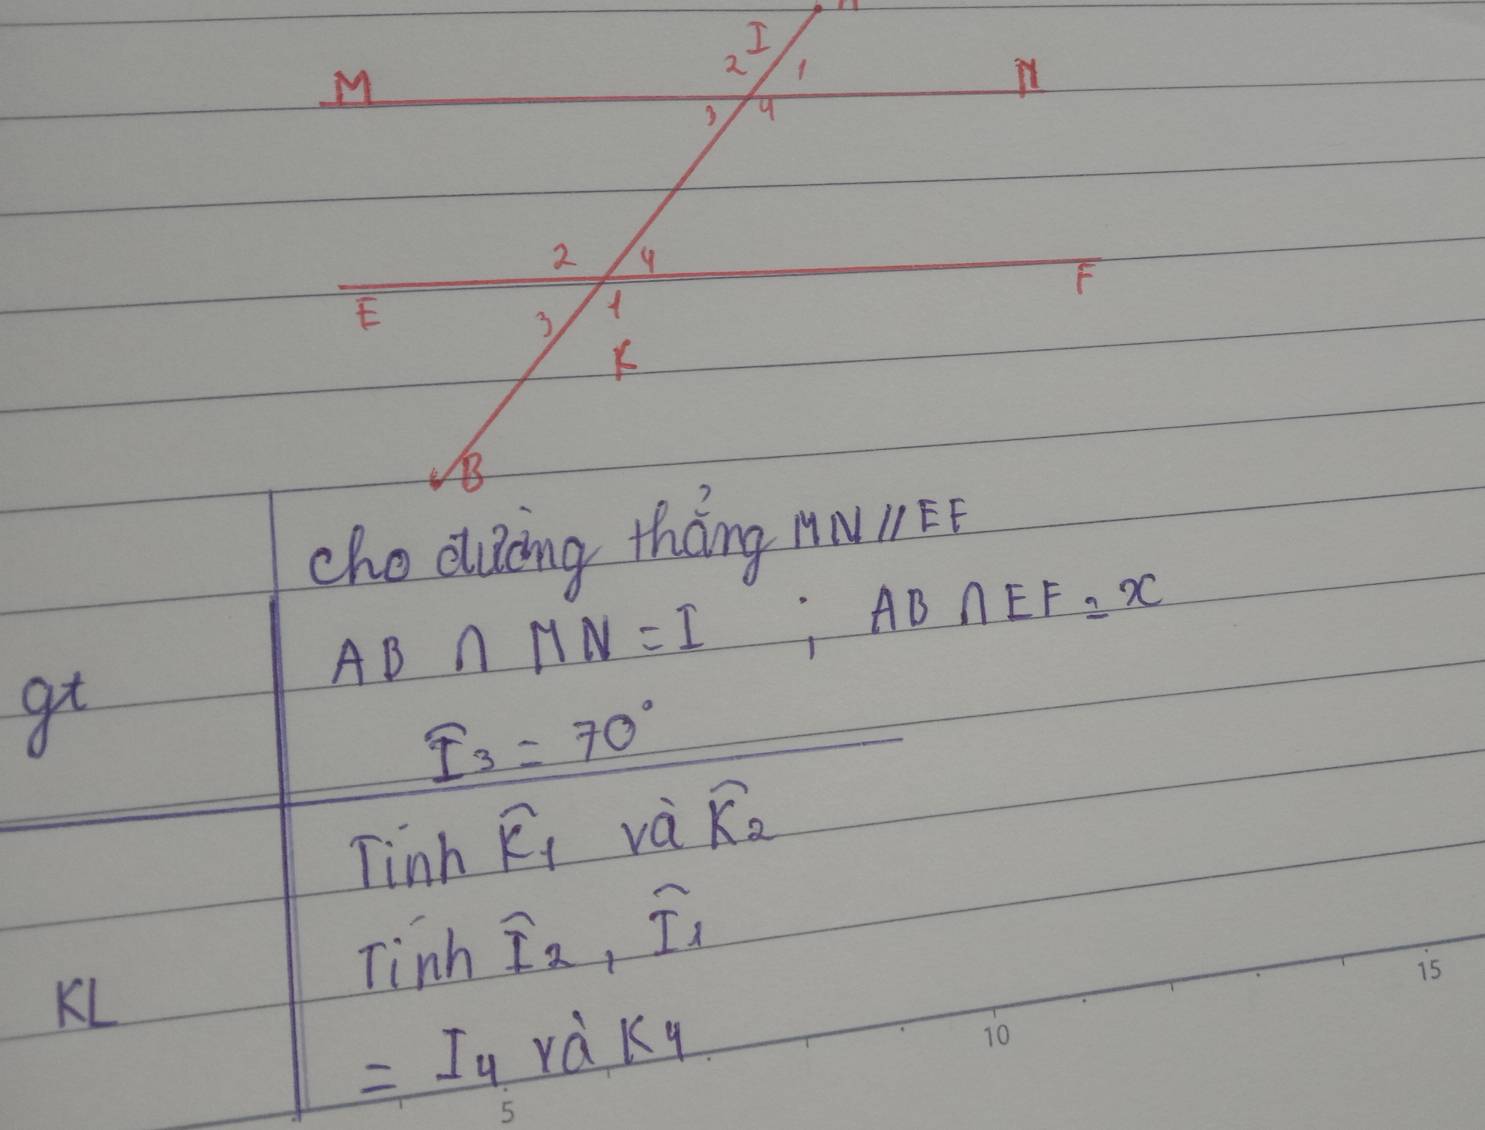 I
2 1
M N
3 4
2 4
E F
3 1
K
B
cho đường thẳng MN // EF
AB ∩ MN = I ; AB ∩ EF = x
gt
Î3 = 70°
Tính K̂1 và K̂2
Tính Î2, Î1
KL
= I4 và K4
5 10 15